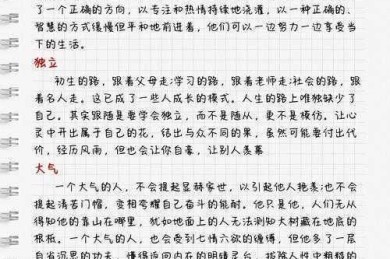 了一个正确的方向，以专注和热情持续地浇灌，以一种正确的、
智慧的方式很慢但平和地前进着，他们可以一边努力一边享受当
下的生活。
独立
初生的路，跟着父母走;学习的路，跟着老师走;社会的路，跟
着名人走。这已成了一些人成长的模式。人生的路上唯独缺少了
自己。其实跟随是要学会独立，而不是随从，更不是模仿。让心
灵中开出属于自己的花，结出与众不同的果，虽然可能要付出代
价，经历风雨，但也会让你自豪，让别人羡慕
大气
一个大气的人，不会提起显赫家世，以引起他人艳羡;也不会
提起清苦门楣，变相夸耀自己奋斗的能耐。他只是他，人们无从
得知他的靠山在哪里，犹如地面上的人无法测知大树藏在地底的
根柢。一个大气的人，也会受到七情六欲的缠缚，但他多了一层
自省沉思的功夫，懂得返回内在的明镜灵台，排除人性中粗糙的